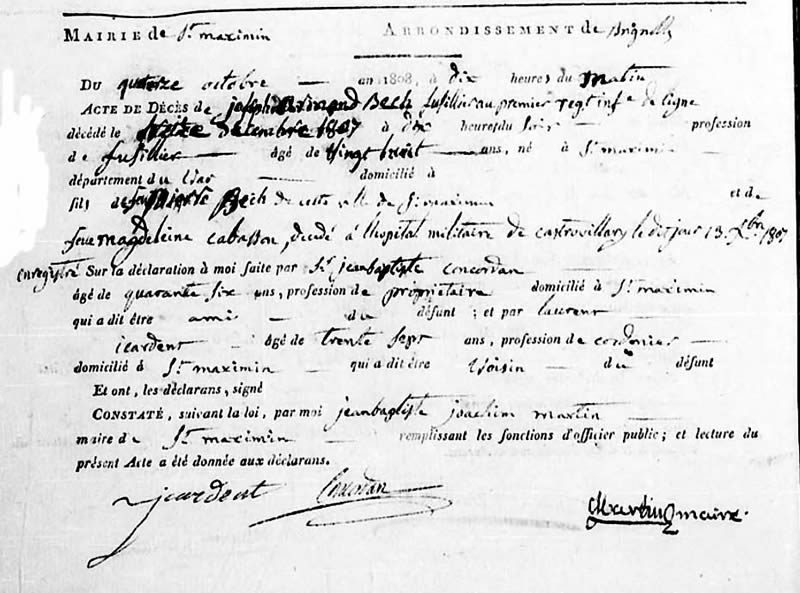 MAIRIE de St maximin ARRONDISSEMENT de Brignolles
DU quatorze octobre an 1808, à dix heures du matin
ACTE DE DÉCÈS de joseph Bech fusillier au premier regt infe de ligne
décédé le treize decembre 1807 à dix heures du soir profession
de fusillier âgé de vingt huit ans, né à St maximin
département du Var domicilié à
fils de feu pierre Bech de cette ville de St maximin et de
feue magdeleine cabasson, decedé à l'hopital militaire de castrovillary le dit jour 13 Xbre 1807
enregistré Sur la déclaration à moi faite par Sr jean baptiste concordan
âgé de quarante six ans, profession de propriétaire domicilié à St maximin
qui a dit être ami du défunt; et par laurent
icardent âgé de trente sept ans, profession de cordonier
domicilié à St maximin qui a dit être voisin du défunt
Et ont, les déclarans, signé
CONSTATÉ, suivant la loi, par moi jean baptiste joachim martin
maire de St maximin remplissant les fonctions d'officier public; et lecture du
présent Acte a été donnée aux déclarans.
jcardent Concordan Martin maire